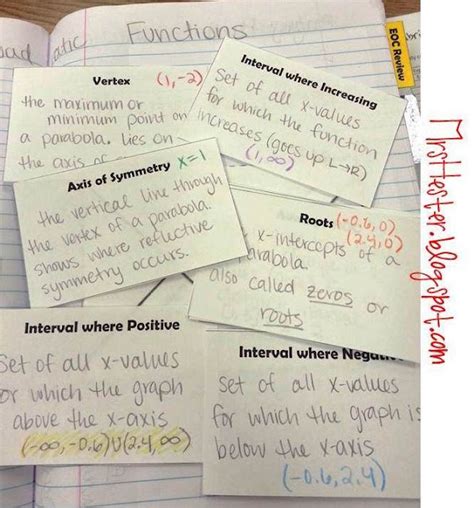 Functions
adratic
EOC Review
Vertex (1,-2)
the maximum or
minimum point on
a parabola. lies on
the axis of
Interval where Increasing
Set of all x-values
for which the function
increases (goes up L→R)
(1,∞)
Axis of Symmetry x=1
the vertical line through
the vertex of a parabola.
shows where reflective
symmetry occurs.
Roots (-0.6,0)
(2.4,0)
x-intercepts of a
parabola.
also called zeros or
roots
Interval where Positive
Set of all x-values
for which the graph
above the x-axis
(-∞,-0.6)U(2.4,∞)
Interval where Negative
set of all x-values
for which the graph is
below the x-axis
(-0.6,2.4)
MrsHester.blogspot.com